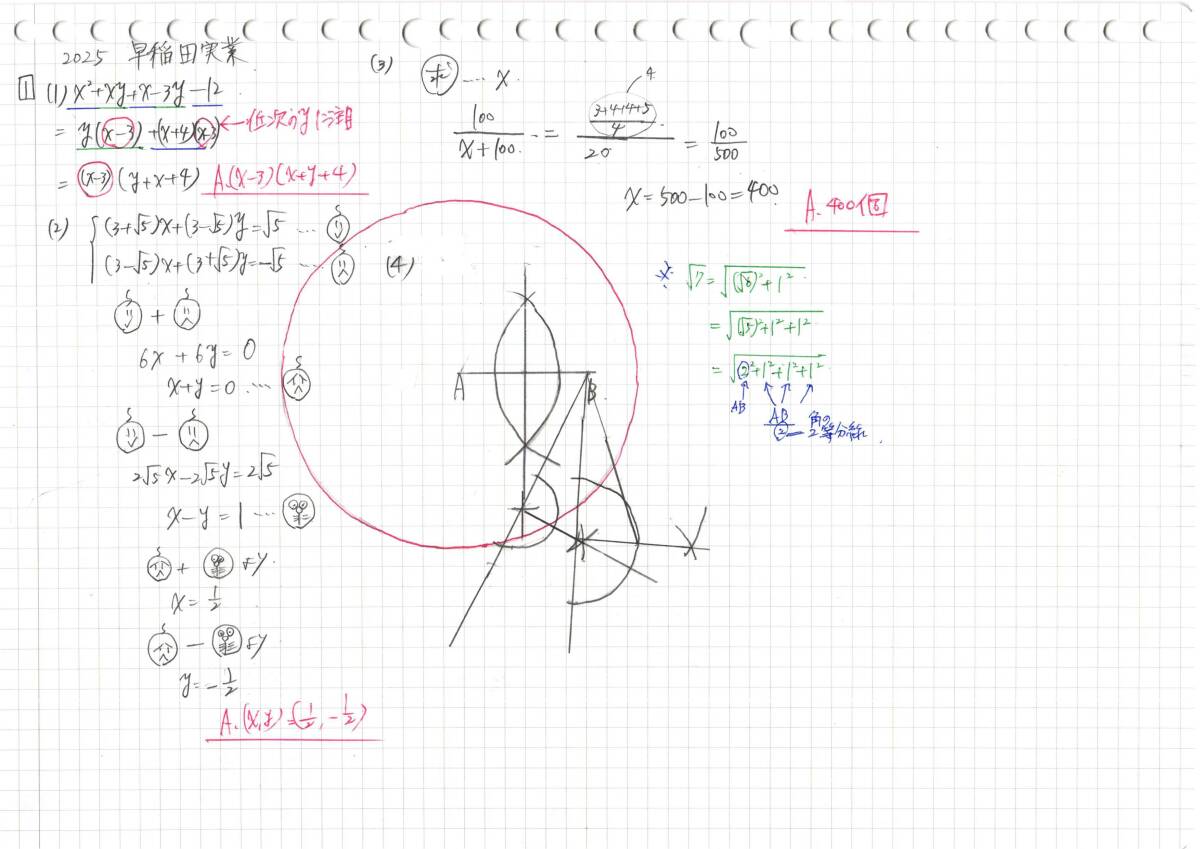 2025 早稲田実業
1 (1) x²+xy+x-3y-12
= y(x-3)+(x+4)(x-3) ←低次のyに注目
= (x-3)(y+x+4) A.(x-3)(x+y+4)
(2) { (3+√5)x+(3-√5)y=√5 …
(3-√5)x+(3+√5)y=-√5 …
+
6x+6y=0
x+y=0 …
-
2√5x-2√5y=2√5
x-y=1 …
+ より
x=1/2
- より
y=-1/2
A.(x,y)=(1/2,-1/2)
(3) 求 … x
100/(x+100) = ((3+4+4+5)/4)/20 = 100/500
4
x=500-100=400
A.400個
(4)
A
B
※ √7=√((√6)²+1²)
=√((√5)²+1²+1²)
=√(2²+1²+1²+1²)
AB
AB/2
角の
2等分線